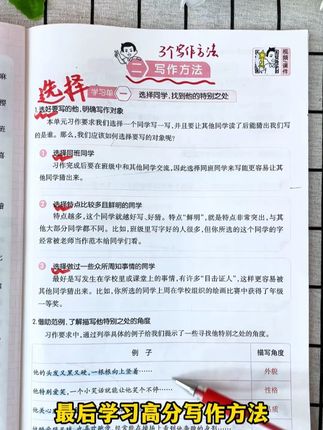 3个写作方法
视频课件
二 写作方法
选择
学习单 一 选择同学,找到他的特别之处
1.选好要写的他,明确写作对象
本单元习作要求我们选择一个同学写一写,并且要让其他同学读了后能猜出我们写
的是谁。那么,我们应该如何选择要写的对象呢?
1 选择同班同学
习作完成后要在班级中和其他同学交流,因此选择同班同学来写能更容易让其
他同学猜出来。
2 选择特点比较多且鲜明的同学
特点越多,这个同学就越好写、好猜。特点“鲜明”,就是特点非常突出,与其
他大部分同学都不同。比如,班级里写字好的人很多,但你所选的这个同学的字
经常被老师当作范本给同学们看。
3 选择做过一些众所周知事情的同学
最好是写发生在学校里或课堂上的事情,有许多“目击证人”,这样更容易被
其他同学猜出来。比如,你所选的同学上周在学校组织的绘画比赛中获得了年级
一等奖。
2.借助范例,了解描写他特别之处的角度
习作要求中,通过列举具体的例子给我们提示了一些寻找他特别之处的角度。
例 子 描写角度
他的头发又黑又硬,一根根向上竖着…… 外貌
他特别爱笑,一个小笑话就能让他笑个不停…… 性格
他关心
最后学习高分写作方法